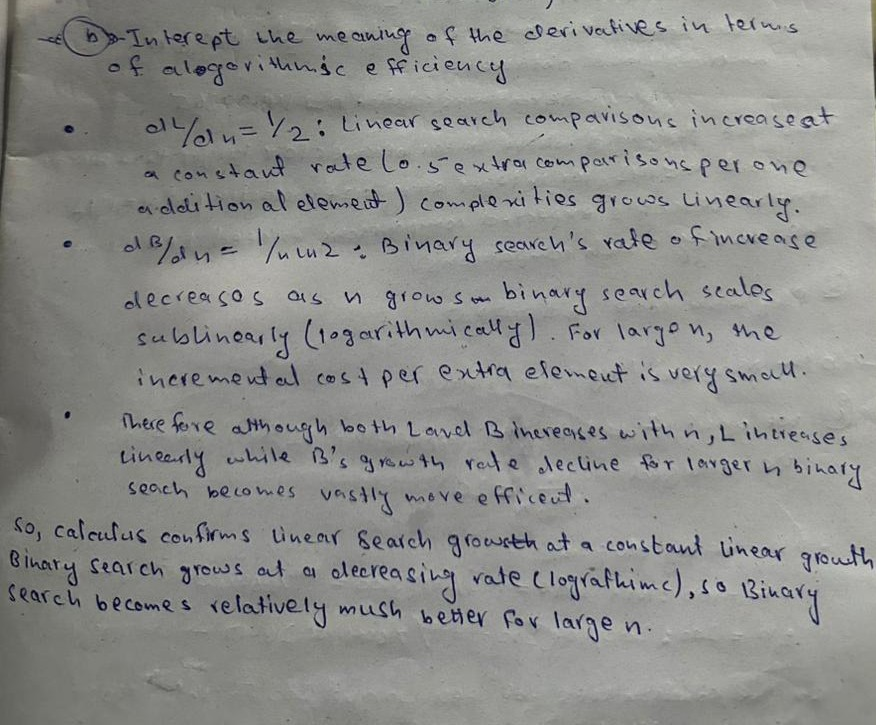 b) Interept the meaning of the derivatives in terms
of alogorithmic efficiency
• dL/dn = 1/2 : Linear search comparisons increase at
a constant rate (0.5 extra comparisons per one
additional element) complexities grows linearly.
• dB/dn = 1/n ln2 : Binary search's rate of increase
decreases as n grows binary search scales
sublinearly (logarithmically). For large n, the
incremental cost per extra element is very small.
• Therefore although both L and B increases with n, L increases
linearly while B's growth rate decline for larger n binary
seach becomes vastly more efficent.
So, calculus confirms linear Search growth at a constant linear growth
Binary search grows at a decreasing rate (lograthimc), so Binary
Search becomes relatively mush better for large n.